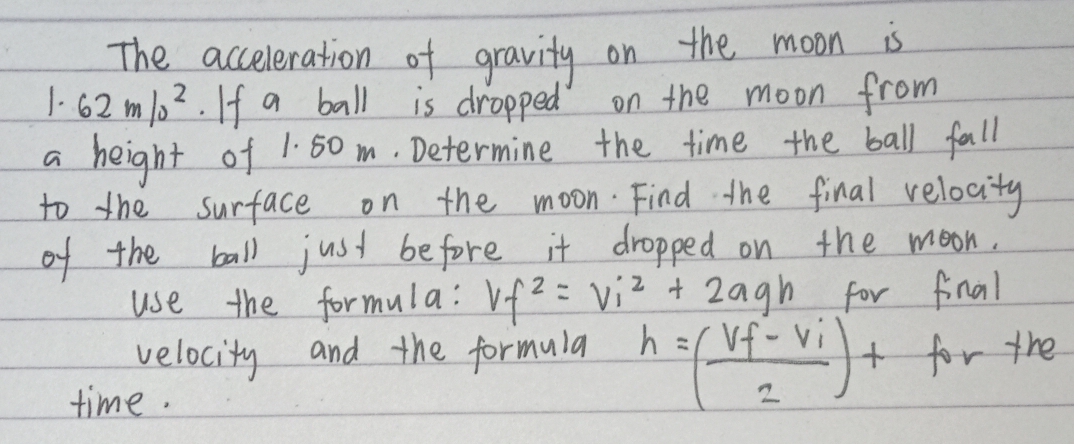 The acceleration of gravity on the moon is
1.62 m/s². If a ball is dropped on the moon from
a height of 1.50 m. Determine the time the ball fall
to the surface on the moon. Find the final velocity
of the ball just before it dropped on the moon.
Use the formula: Vf² = Vi² + 2agh for final
velocity and the formula h = (Vf - Vi / 2) t for the
time.